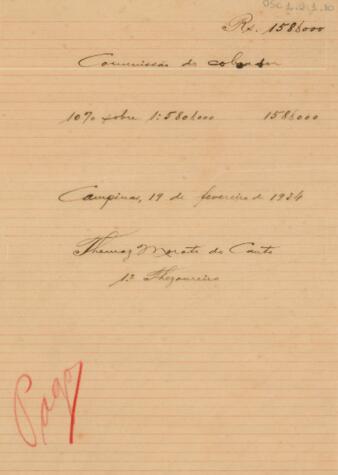 OSC 1.2.1.10
Rs. 158$000
Commissão do cobrador
10% sobre 1:580$000 158$000
Campinas, 19 de fevereiro de 1934
Thomaz Morato do Canto
1º Thezoureiro
Pago